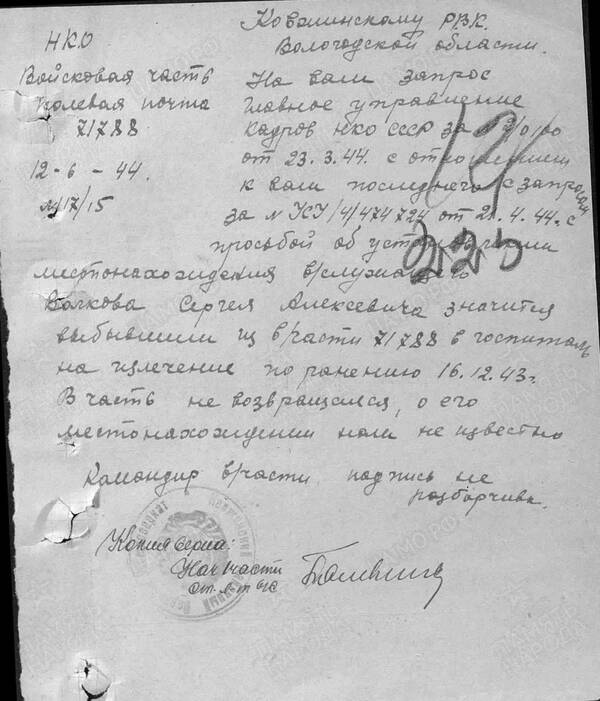 НКО
Войсковая часть
полевая почта
71788
12-6-44.
№17/15
РВК.
Вологодской области.
На ваш запрос
Главное управление
кадров НКО СССР за №
от 23.3.44. с отношением
к вам последнего с запросом
за № УСУ/4/474724 от 21.4.44. с
просьбой об установлении
местонахождения в/служащего
Волкова Сергея Алексеевича значится
выбывшим из в/части 71788 в госпиталь
на излечение по ранению 16.12.43г.
В часть не возвращался, о его
местонахождении нам не известно
Командир в/части подпись не
разборчива.
Копия верна:
Нач 1 части
225